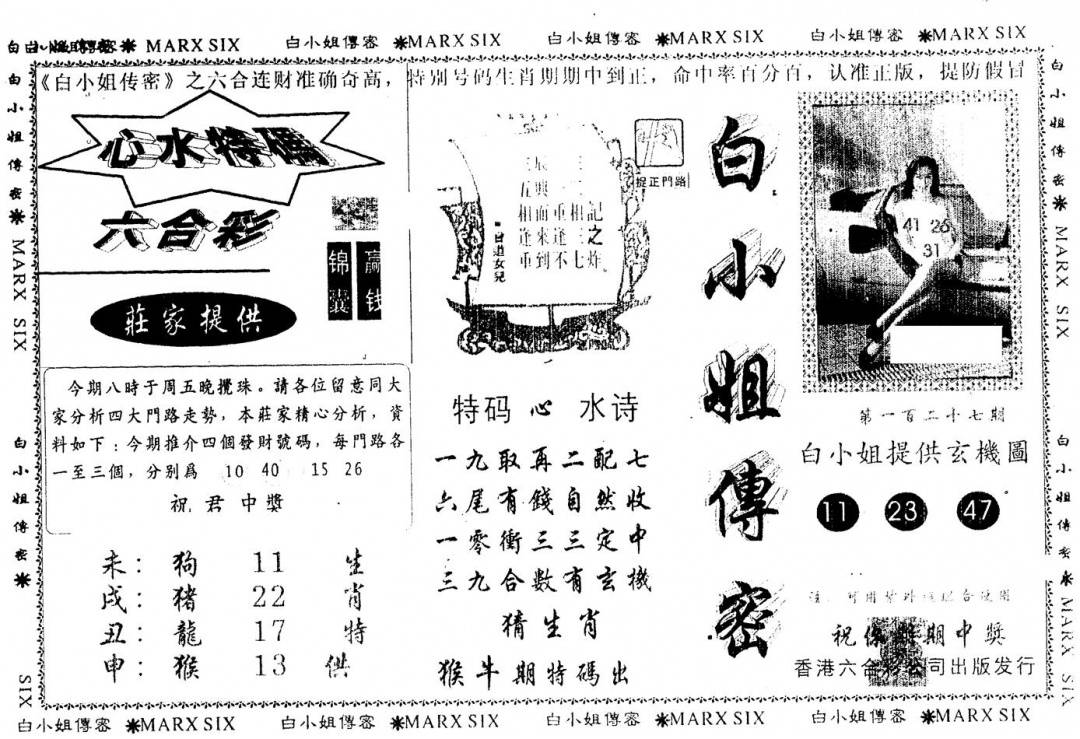 白小姐傳密 ✷ MARX SIX 白小姐傳密 ✷MARX SIX 白小姐傳密 ✷MARX SIX 白小姐傳密 ✷MARX SIX
《白小姐传密》之六合连财准确奇高，特别号码生肖期期中到正，命中率百分百，认准正版，提防假冒
心水特碼
六合彩
锦囊
赢钱
莊家提供
今期八時于周五晚攪珠。請各位留意同大
家分析四大門路走勢，本莊家精心分析，資
料如下：今期推介四個發財號碼，每門路各
一至三個，分别爲 10 40 15 26
祝君中獎
未：狗 11 生
戌：猪 22 肖
丑：龍 17 特
申：猴 13 供
捉正門路
相面重相記
逢來逢三之
重到不七炸
白道女兒
特码心水诗
一九取再二配七
六尾有錢自然收
一零衝三三定中
三九合數有玄機
猜生肖
猴牛期特碼出
白小姐傳密
41 26
31
第一百二十七期
白小姐提供玄機圖
11 23 47
香港六合彩公司出版发行
白小姐傳密 ✷ MARX SIX
白小姐傳密 ✷
SIX
白小姐傳密 ✷ MARX SIX
白小姐傳密 ✷ MARX SIX
白小姐傳密 ✷MARX SIX 白小姐傳密 ✷MARX SIX 白小姐傳密 ✷MARX SIX 白小姐傳密 ✷MARX SIX